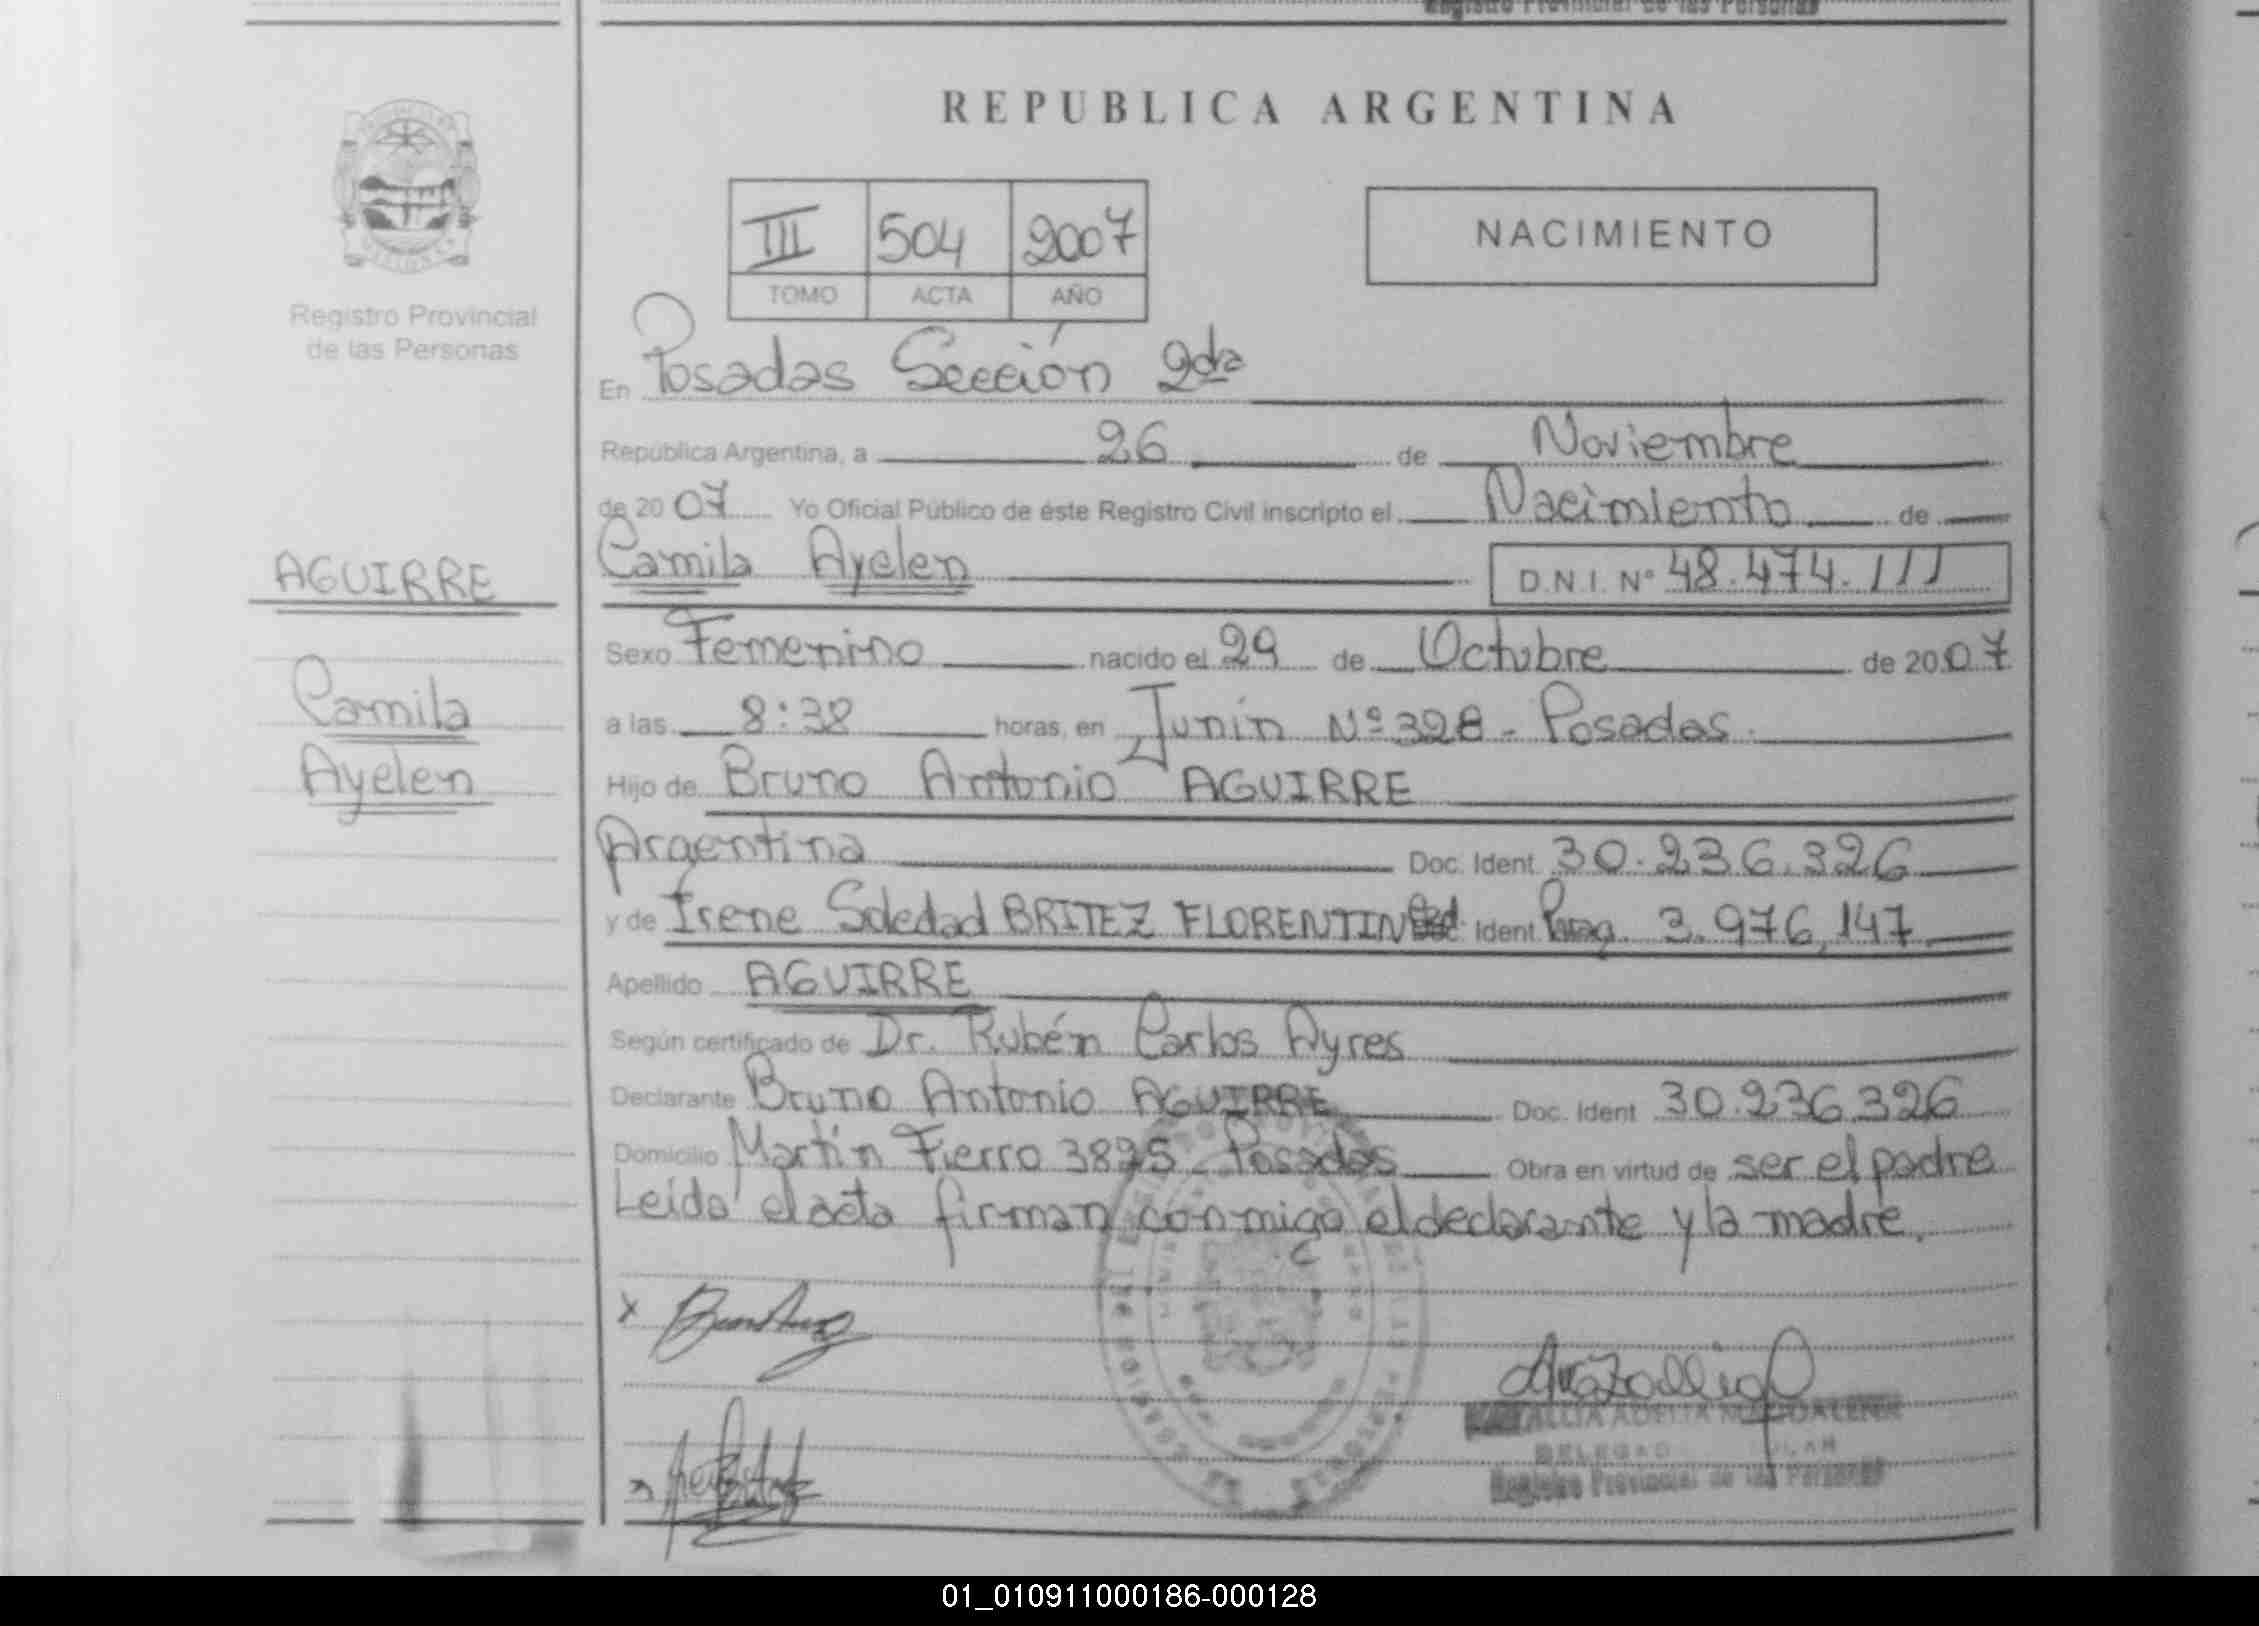 Registro Provincial de las Personas
REPUBLICA ARGENTINA
III 504 2007
TOMO ACTA AÑO
NACIMIENTO
Registro Provincial
de las Personas
En Posadas Sección 2da
República Argentina, a 26 de Noviembre
de 2007 Yo Oficial Público de éste Registro Civil inscripto el Nacimiento de
AGUIRRE
Camila
Ayelen
Camila Ayelen D.N.I. Nº 48.474.111
Sexo Femenino nacido el 29 de Octubre de 2007
a las 8:38 horas, en Junín Nº 328 - Posadas.
Hijo de Bruno Antonio AGUIRRE
Argentina Doc. Ident. 30.236.326
y de Irene Soledad BRITEZ FLORENTIN Ident. Parag. 3.976,147
Apellido AGUIRRE
Según certificado de Dr. Rubén Carlos Ayres
Declarante Bruno Antonio AGUIRRE Doc. Ident. 30.236.326
Domicilio Martín Fierro 3895 - Posadas Obra en virtud de ser el padre
Leída el acta firman conmigo el declarante y la madre.
ADELIA MAGDALENA
Registro Provincial de las Personas
01_010911000186-000128